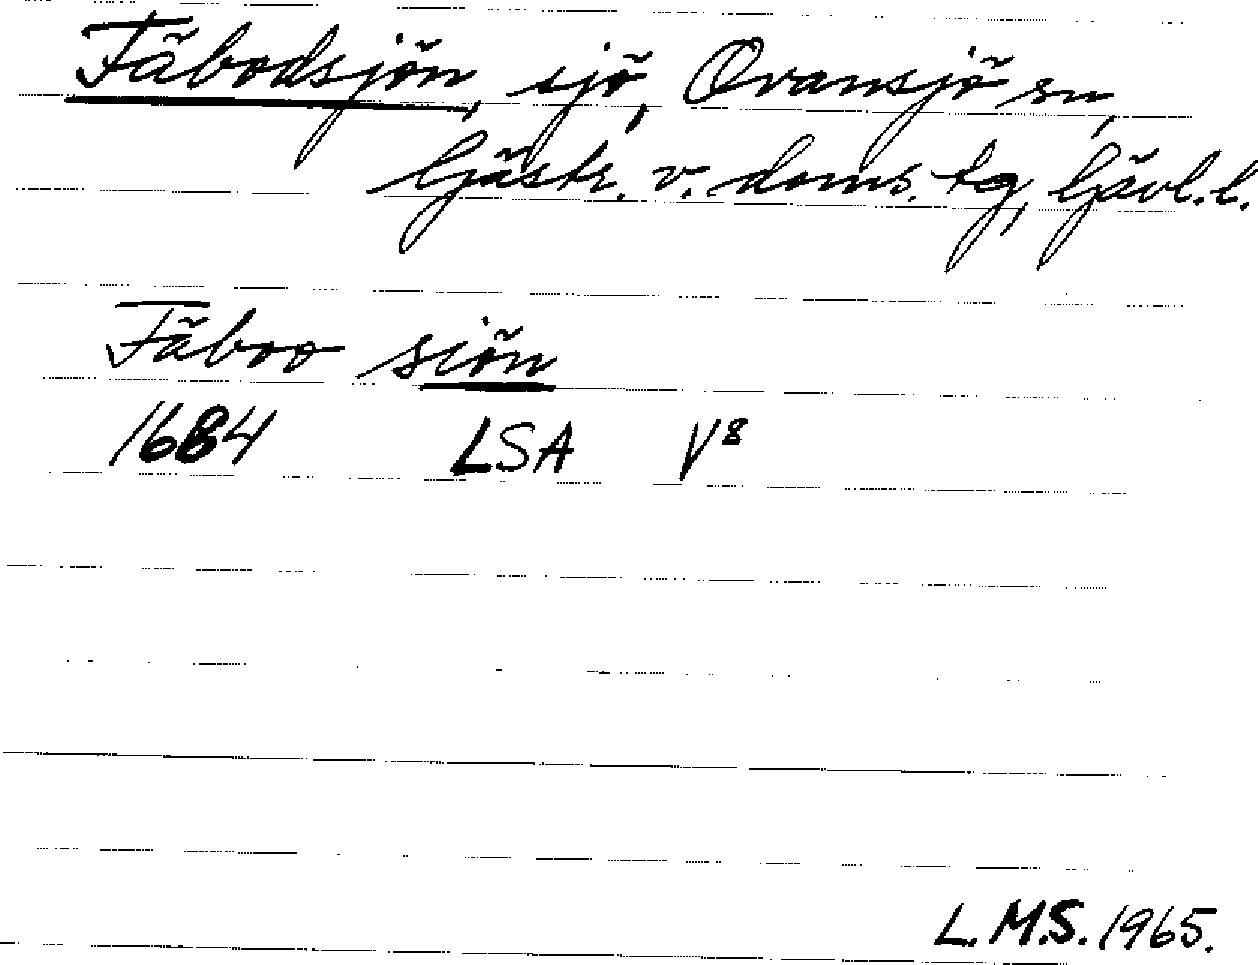 Fäbodsjön, sjö, Ovansjö sn,
Gästr. v. doms. tg, Gävl. l.
Fäboo siön
1684 LSA V⁸
L.M.S. 1965.